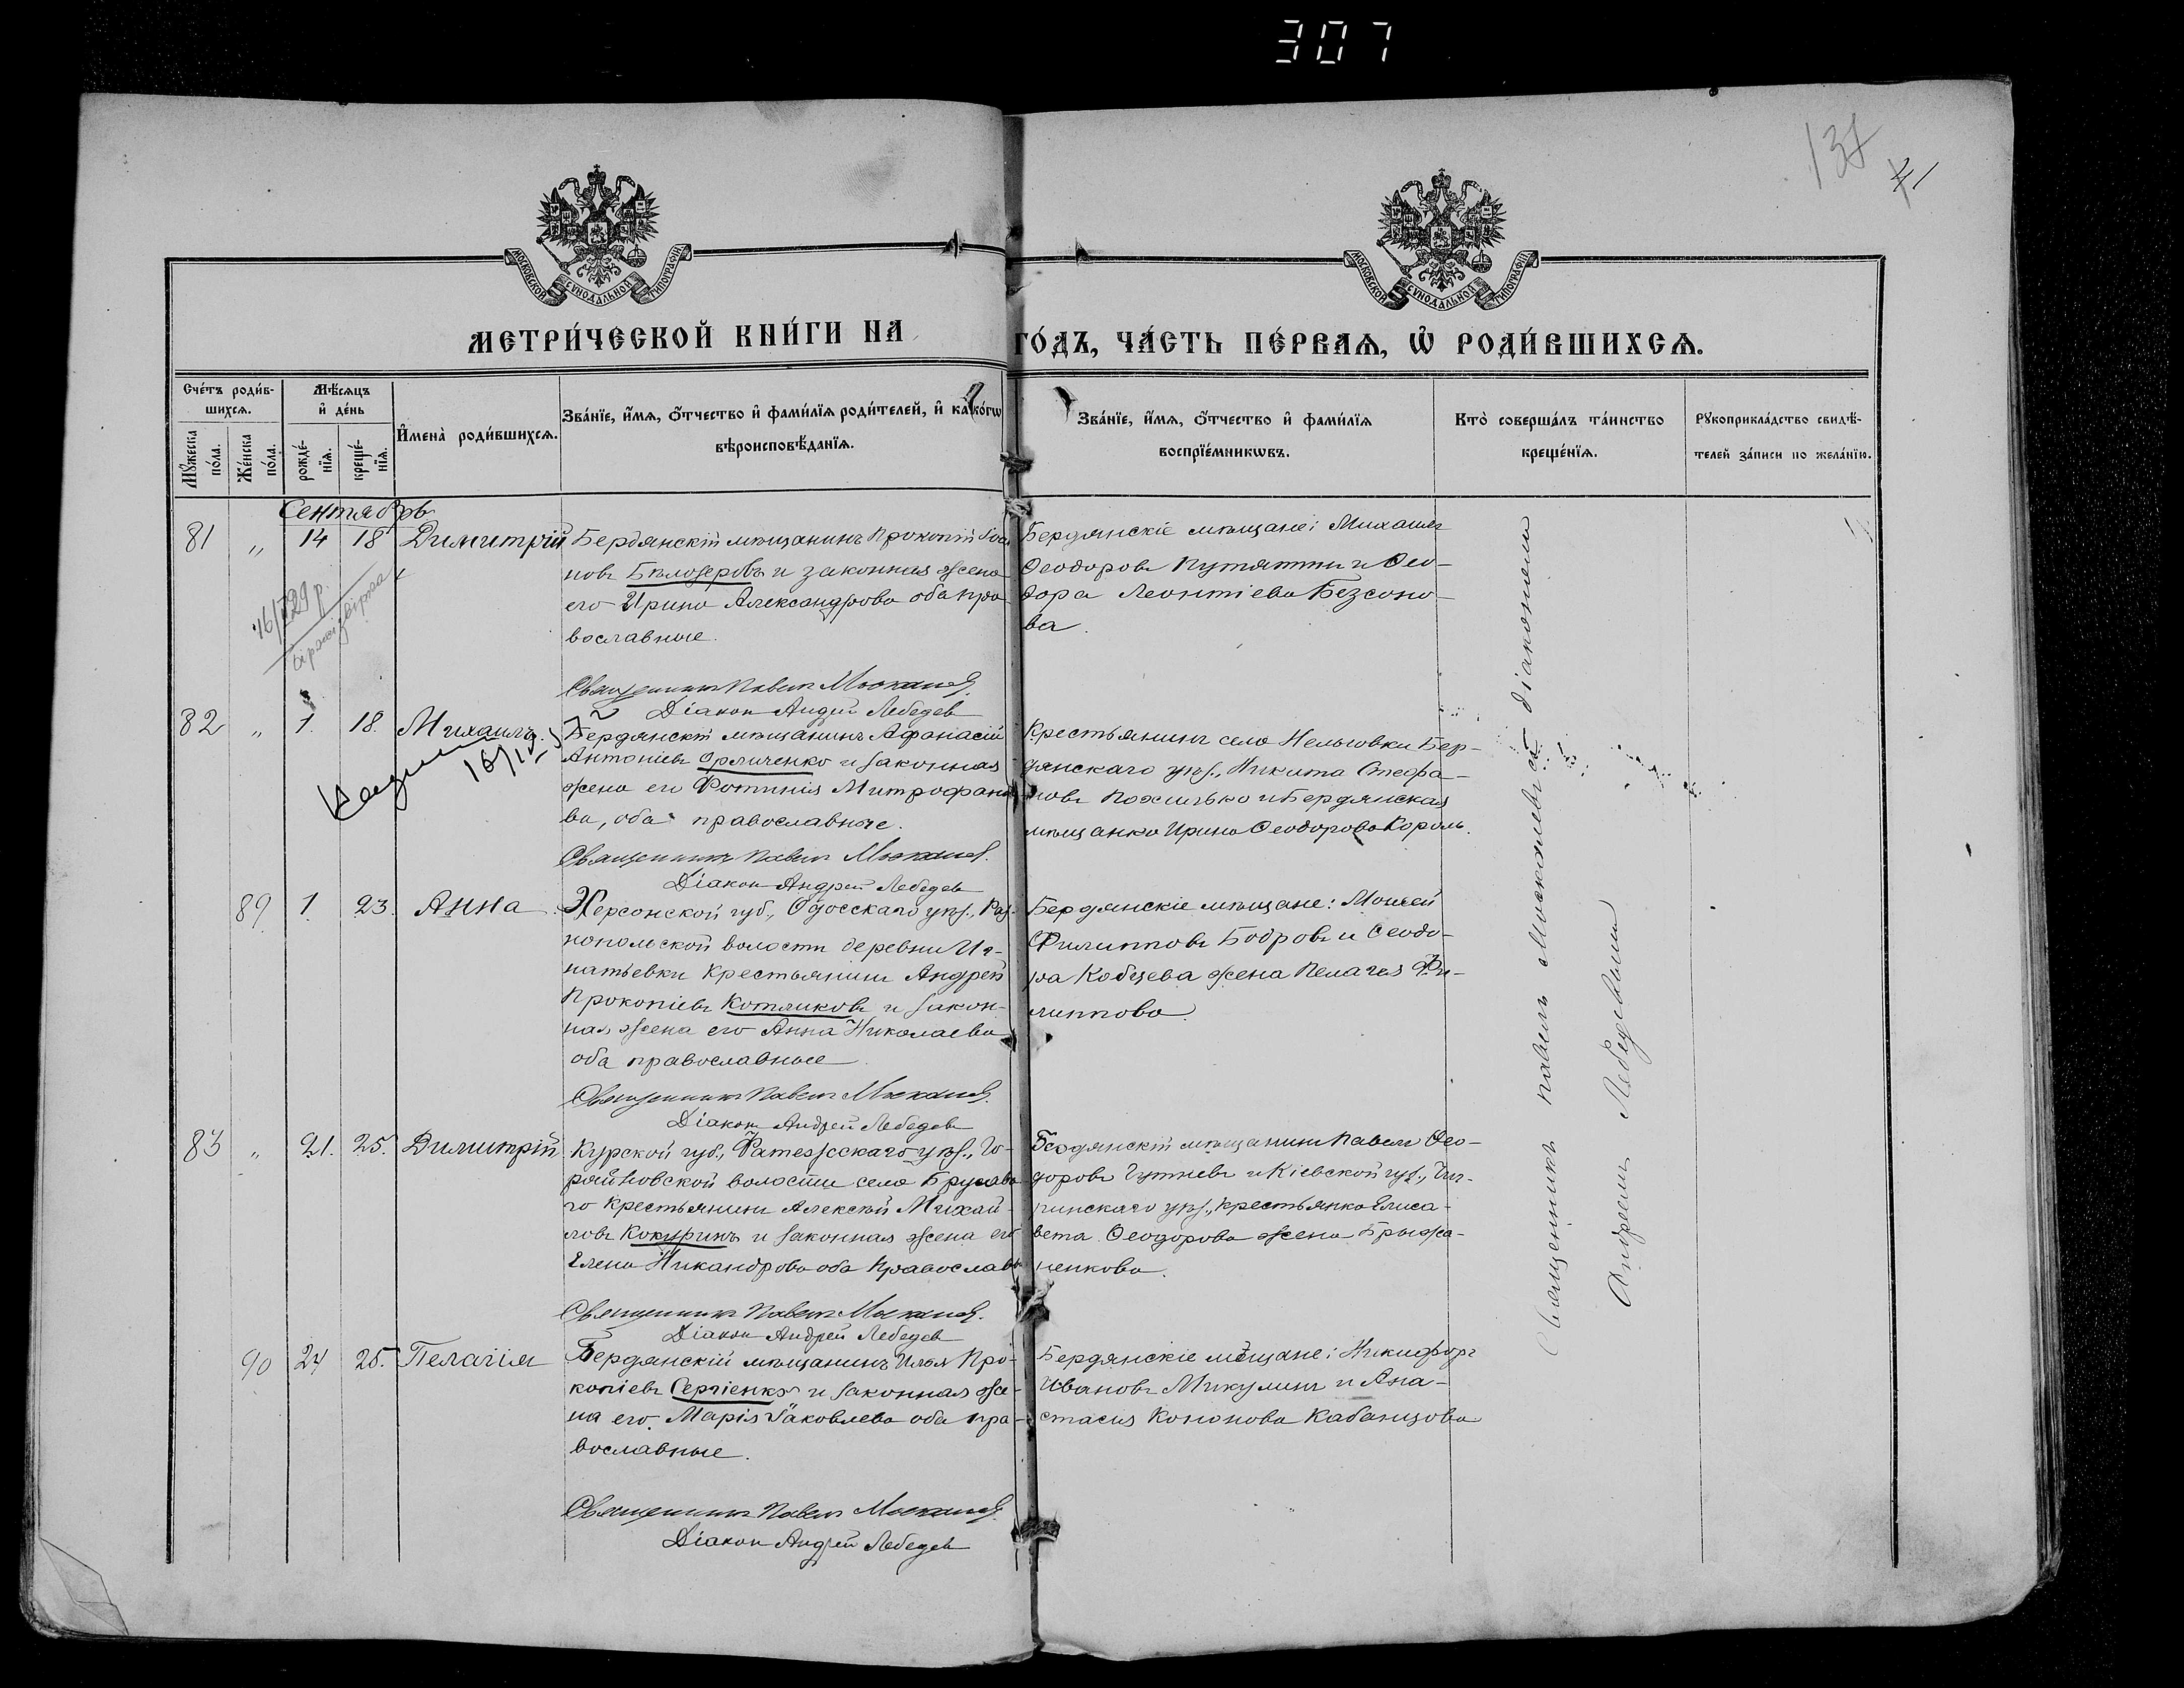 307
137
41
МОСКОВСКОЙ СѴНОДАЛЬНОЙ ТИПОГРАФІИ
МОСКОВСКОЙ СѴНОДАЛЬНОЙ ТИПОГРАФІИ
МЕТРИ́ЧЕСКОЙ КНИ́ГИ НА ГО́ДЪ, ЧА́СТЬ ПЕ́РВАѦ, Ѡ҆ РОДИ́ВШИХСѦ.
Сче́тъ роди́в-
шихсѧ.
Мꙋ́жеска по́ла.
Же́нска по́ла.
Мѣ́сѧцъ
и҆ де́нь
рожде́-
нїѧ.
креще́-
нїѧ.
И҆мена̀ роди́вшихсѧ.
Зва́нїе, и҆́мѧ, ѻ҆́тчество и҆ фами́лїѧ роди́телей, и҆ како́гѡ
вѣроисповѣ́данїѧ.
Зва́нїе, и҆́мѧ, ѻ҆́тчество и҆ фами́лїѧ
воспрїе́мникѡвъ.
Кто̀ соверша́лъ та́инство
креще́нїѧ.
Рꙋкоприкла́дство свидѣ́-
телей за́писи по жела́нїю.
Сентябрь
81 " 14 18 Димитрій
Бердянскій мѣщанинъ Прокопій Іоа
новъ Бѣлозеровъ и законная жена
его Ирина Александрова оба пра
вославные.
Священникъ Павелъ Москалевъ
Діакон Андрей Лебедев
Бердянскіе мѣщане: Михаилъ
Ѳеодоровъ Путятинъ и Ѳео-
дора Леонтіева Безсоно-
ва.
82 " 1. 18. Михаилъ.
16/12
Бердянскій мѣщанинъ Афанасій
Антоніевъ Орличенко и законная
жена его Фотинія Митрофано
ва, оба православные.
Священникъ Павелъ Москалевъ
Діакон Андрей Лебедев
Крестьянинъ села Нельговки Бер-
дянскаго уѣз., Никита Стефа-
новъ и Бердянская
мѣщанка Ирина Ѳеодорова Король.
89 1 23. Анна
Херсонской губ., Одесскаго уѣз., Раз-
нопольской волости деревни Иг-
натьевки крестьянинъ Андрей
Прокопіевъ Котляковъ и закон-
ная жена его Анна Николаева
оба православные
Священникъ Павелъ Москалевъ
Діакон Андрей Лебедев
Бердянскіе мѣщане: Моисей
Филипповъ Бобровъ и Ѳеодо-
ра Кобцева жена Пелагея Фи-
липпова.
83 " 21. 25. Димитрій
Курской губ., Фатежскаго уѣз.,
волости села
го крестьянинъ Алексѣй Михай-
ловъ Кокуринъ и законная жена его
Елена Никандрова оба православн
Священникъ Павелъ Москалевъ
Діакон Андрей Лебедев
Бердянскій мѣщанинъ Павелъ Ѳео-
доровъ и Кіевской губ., Чиг-
ринскаго уѣз., крестьянка Елиса-
вета Ѳеодорова жена Брыжа-
ненкова.
90 24 25. Пелагія
Бердянскій мѣщанинъ Илья Про-
копіевъ Сергіенко и законная же-
на его Марія Іаковлева оба пра-
вославные.
Священникъ Павелъ Москалевъ
Діакон Андрей Лебедев
Бердянскіе мѣщане: Никифоръ
Ивановъ Микулинъ и Ана-
стасія Кононова Кабанцова
Священникъ Павелъ Москалевъ съ діакономъ
Андреемъ Лебедевымъ